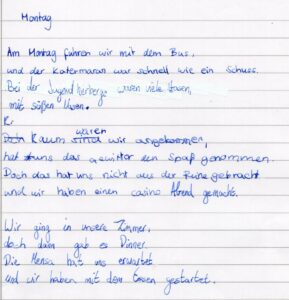 Montag
Am Montag fuhren wir mit dem Bus,
und der Katermaran war schnell wie ein Schuss.
Bei der Jugendherberge waren viele Hasen,
mit süßen Nasen.
Kaum waren wir angekommen,
hat uns das Gewitter den Spaß genommen.
Doch das hat uns nicht aus der Ruhe gebracht
und wir haben einen casino Abend gemacht.
Wir ging in unsere Zimmer,
doch dann gab es Dinner.
Die Mensa hat uns erwartet
und wir haben mit dem Essen gestartet.